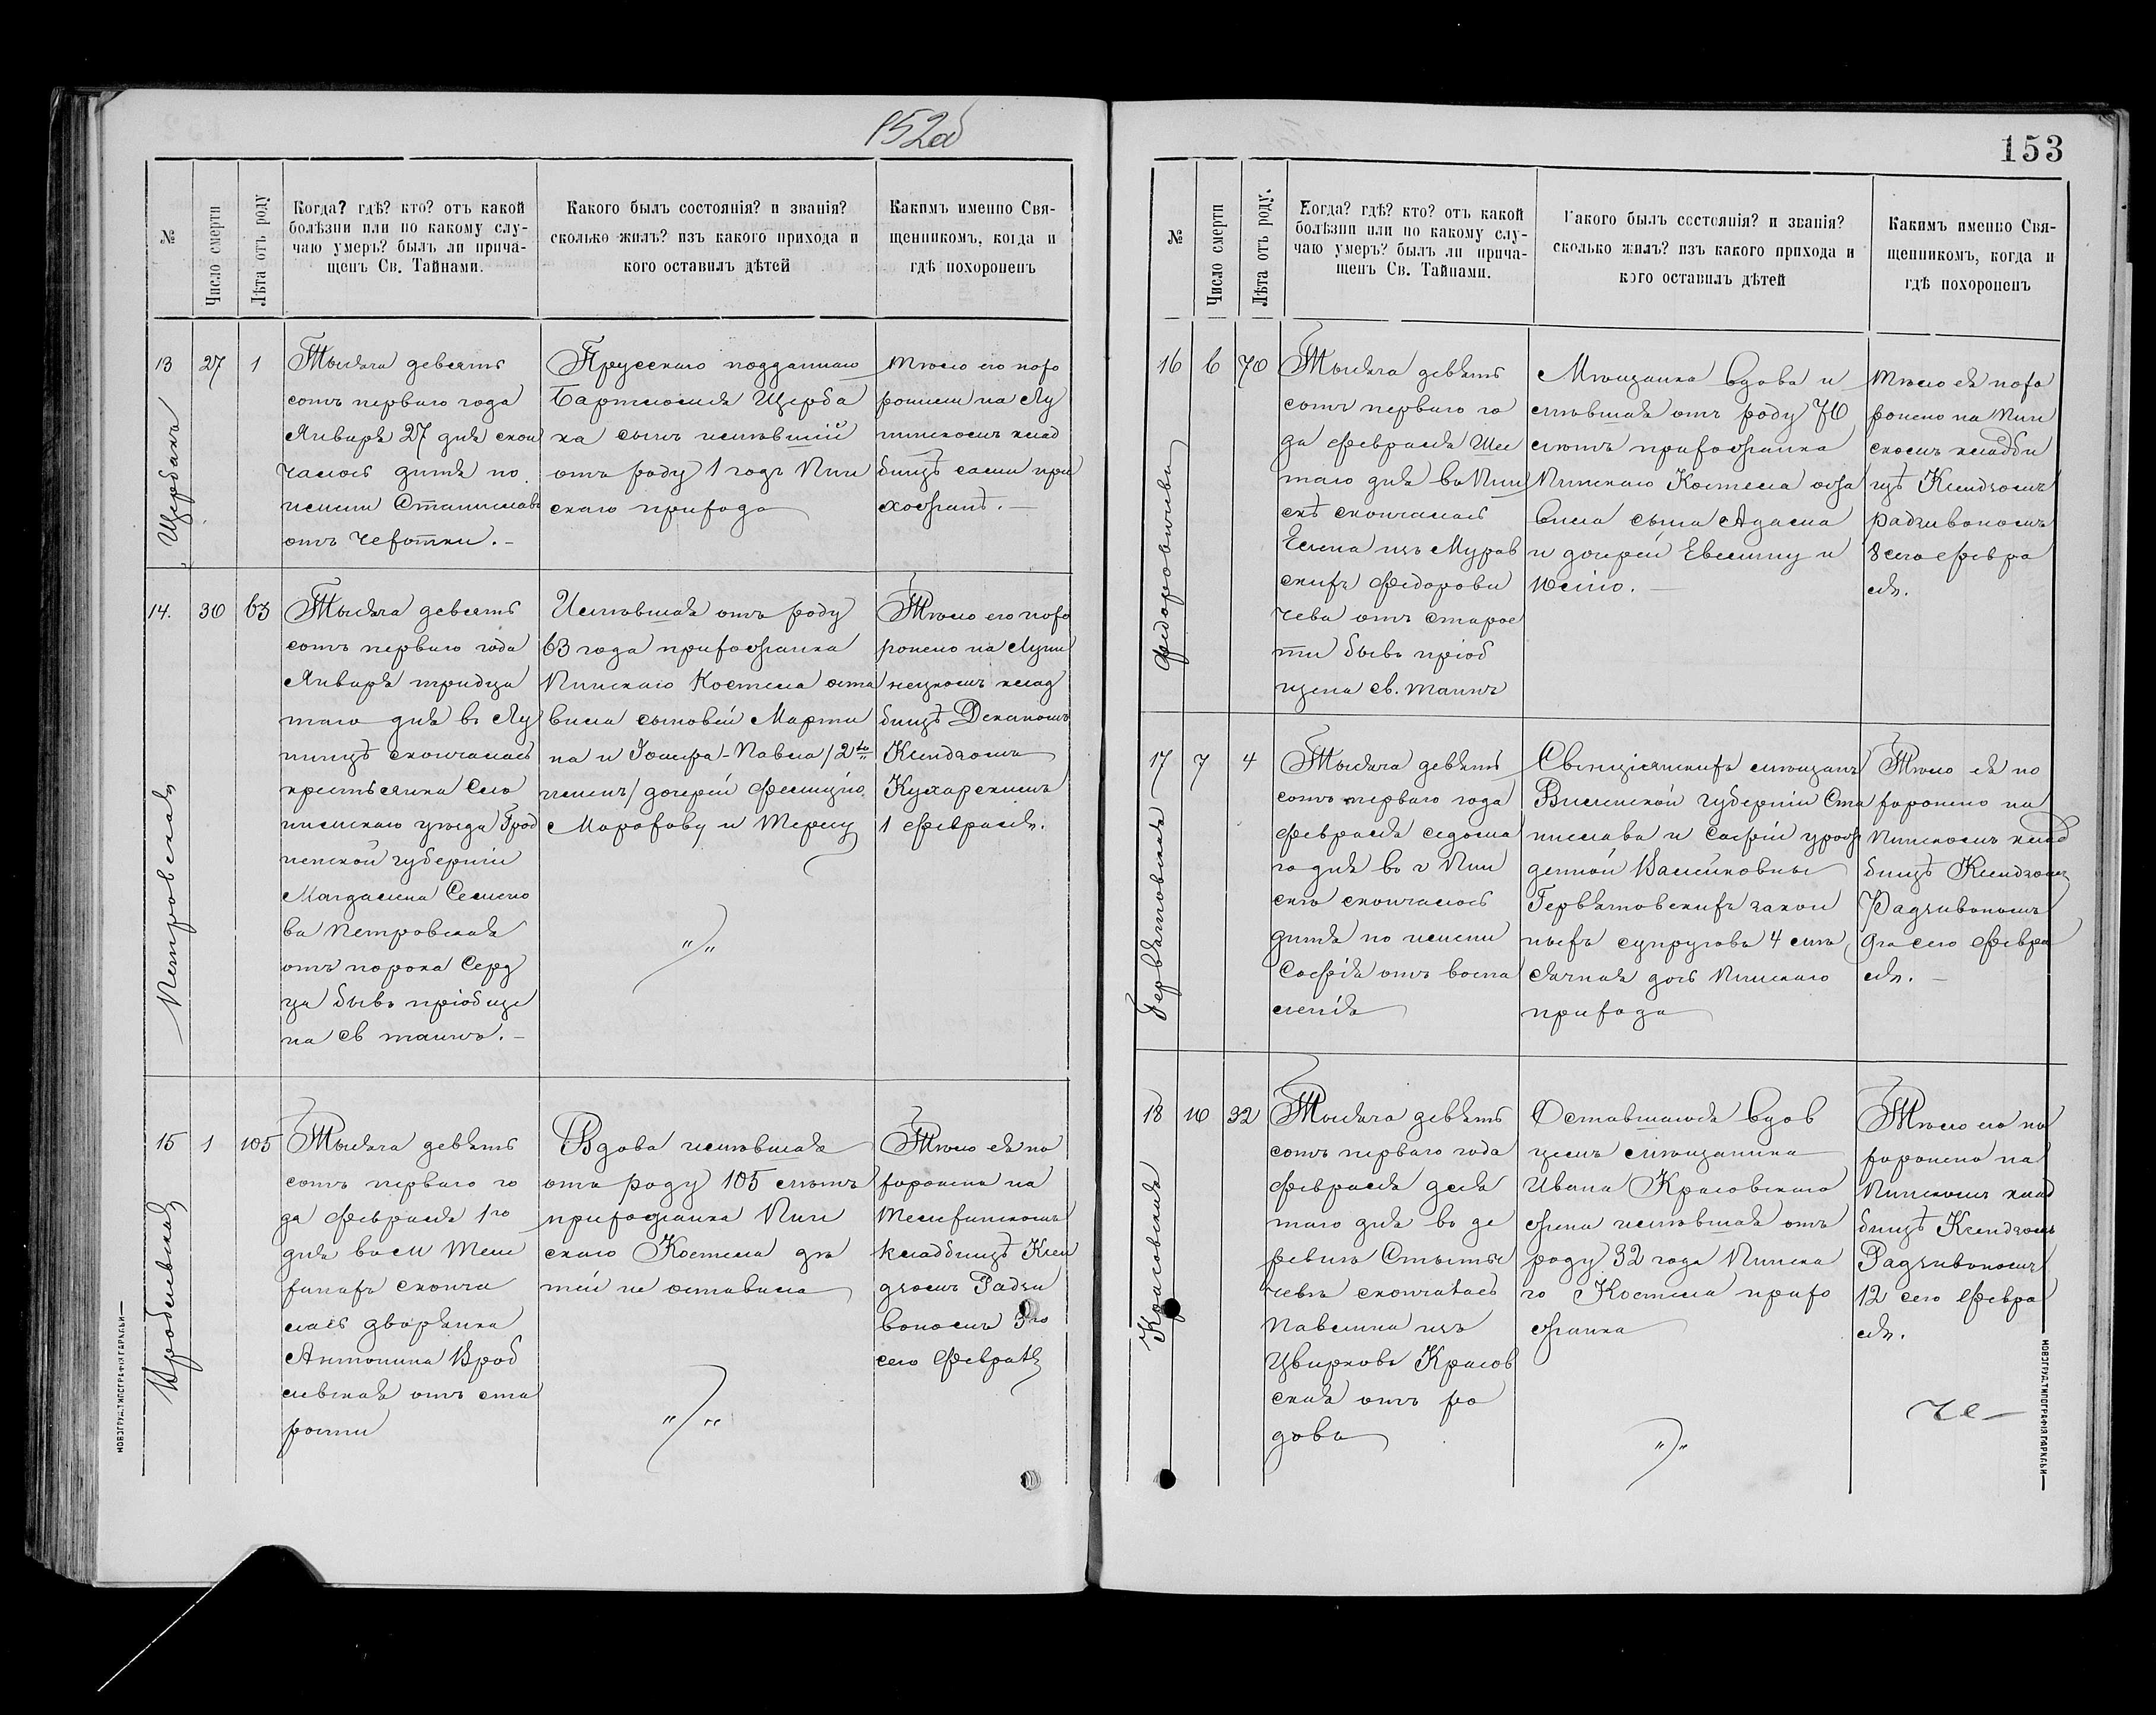 152об
№
Число смерти
Лѣта отъ роду
Когда? гдѣ? кто? отъ какой
болѣзни или по какому слу-
чаю умеръ? былъ ли прича-
щенъ Св. Тайнами.
Какого былъ состоянія? и званія?
сколько жилъ? изъ какого прихода и
кого оставилъ дѣтей
Какимъ именно Свя-
щенникомъ, когда и
гдѣ похороненъ
Щербакъ
13
27
1
Тысяча девять
сотъ перваго года
Января 27 дня скон
чалось дитя по
имени Станиславъ
отъ чехотки.-
Прусскаго подданнаго
Бартломея Щерба
ка сынъ имѣвшій
отъ роду 1 годъ Пин
скаго прихода
Тѣло его похо
ронено на Лу
нинскомъ клад
бищѣ сами при
хожанѣ.-
Петровская
14.
30
63
Тысяча девять
сотъ перваго года
Января тридца
таго дня въ Лу
нинцѣ скончалась
крестьянка Сло
нимскаго уѣзда Грод
ненской губерніи
Магдалина Семено
ва Петровская
отъ порока серд
ца бывъ пріобще
на св таинъ.-
Имѣвшая отъ роду
63 года прихожанка
Пинскаго Костела оста
вила сыновей Марти
на и Іосифа-Павла /2хъ
именъ/ дочерей Фелицію
Тѣло его похо
ронено на Луни
нецкомъ клад
бищѣ Деканомъ
Ксендзомъ
Кухарскимъ
1 Февраля.
Вроблевская
15
1
105
Тысяча девять
сотъ перваго го
да Февраля 1го
дня въ м Теле
ханахъ сконча
лась дворянка
Антонина Вроб
левская отъ ста
рости
Вдова имѣвшая
отъ роду 105 лѣтъ
прихожанка Пин
скаго Костела дѣ
тей не оставила
Тѣло ея по
хоронено на
Телеханскомъ
кладбищѣ Ксен
дзомъ Радзи
вономъ 3го
сего Февраля
НОВОГРУД. ТИПОГРАФІЯ ГАРКАВИ
153
№
Число смерти
Лѣта отъ роду.
Когда? гдѣ? кто? отъ какой
болѣзни или по какому слу-
чаю умеръ? былъ ли прича-
щенъ Св. Тайнами.
Какого былъ состоянія? и званія?
сколько жилъ? изъ какого прихода и
кого оставилъ дѣтей
Какимъ именно Свя-
щенникомъ, когда и
гдѣ похороненъ
Федоровичева
16
6
70
Тысяча девять
сотъ перваго го
да Февраля Шес
таго дня въ Пин
скѣ скончалась
Елена изъ Мурав
скихъ Федорови
чева отъ старос
ти бывъ пріоб
щена св. таинъ
Мѣщанка вдова и
мѣвшая отъ роду 70
лѣтъ прихожанка
Пинскаго Костела оста
вила сына Адама
и дочерей Евелину и
Юлію.-
Тѣло ея похо
ронено на Пин
скомъ кладби
щѣ Ксендзомъ
Радзивономъ
8 сего Февра
ля.
Гервятовская
17
7
4
Тысяча девять
сотъ перваго года
Февраля седьма
го дня въ г Пин
скѣ скончалось
дитя по имени
Софія отъ воспа
ленія
Свенцянскихъ мѣщанъ
Виленской губерніи Ста
нислава и Софіи урож
денной Валейковны
Гервятовскихъ закон
ныхъ супруговъ 4 мѣ
сячная дочь Пинскаго
прихода
Тѣло ея по
хоронено на
Пинскомъ клад
бищѣ Ксендзомъ
Радзивономъ
9го сего Февра
ля.-
Красовская
18
10
32
Тысяча девять
сотъ перваго года
Февраля деся
таго дня въ де
ревнѣ Стыты
чевѣ скончалась
Павлина изъ
Цвирковъ Красов
ская отъ ро
довъ
Оставшагося вдов
цемъ мѣщанина
Ивана Красовскаго
жена имѣвшая отъ
роду 32 года Пинска
го Костела прихо
жанка
Тѣло его по
хоронено на
Пинскомъ клад
бищѣ Ксендзомъ
Радзивономъ
12 сего Февра
ля.
НОВОГРУД. ТИПОГРАФІЯ ГАРКАВИ